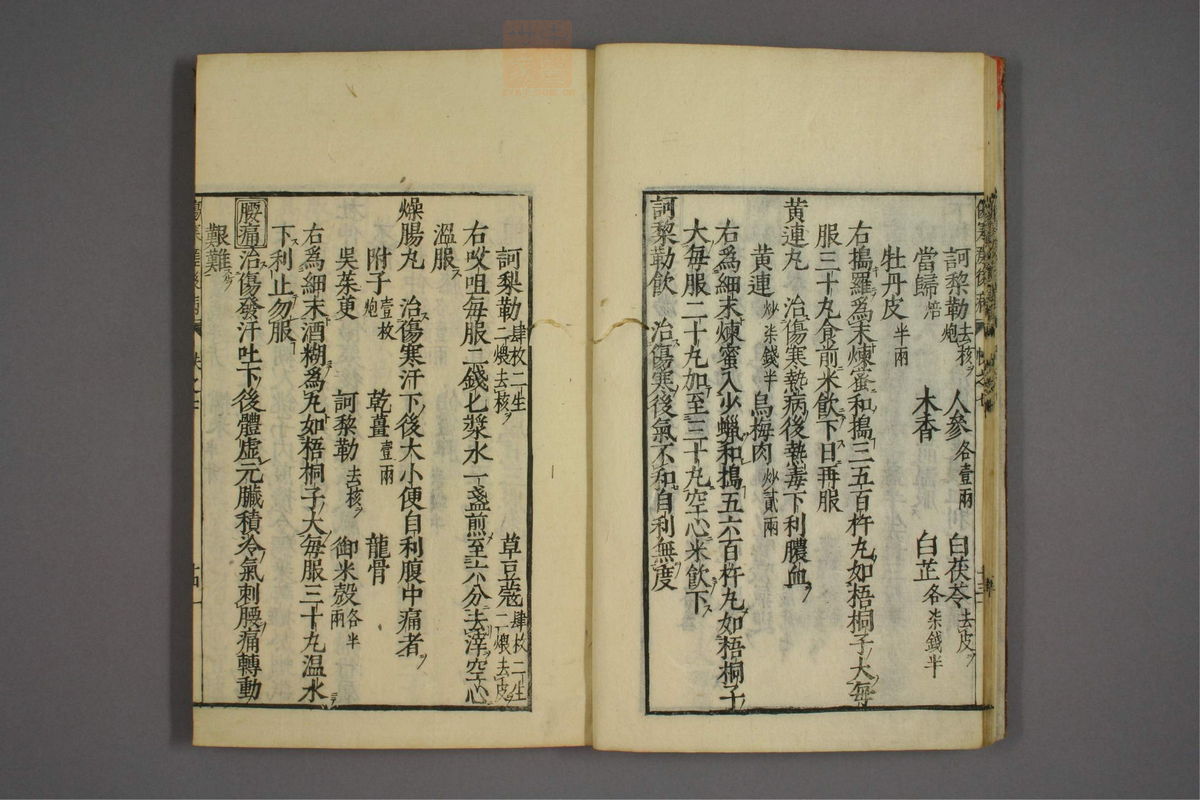 訶黎勒去核炮 人參各壹兩 白茯苓去皮
當歸焙 木香 白芷各柒錢半
牡丹皮半兩
右搗羅爲末煉蜜和搗三五百杵丸如梧桐子大每
服三十丸食前米飲下日再服
黄連丸 治傷寒熱病後熱毒下利膿血
黄連炒柒錢半 烏梅肉炒貳兩
右爲細末煉蜜入少蠟和搗五六百杵丸如梧桐子
大每服二十丸加至三十丸空心米飲下
訶黎勒飲 治傷寒後氣不和自利無度
訶梨勒肆枚二生二煨去核 草豆蔻肆枚二生二煨去皮
右㕮咀每服二錢匕漿水一盞煎至六分去滓空心
溫服
燥腸丸 治傷寒汗下後大小便自利腹中痛者
附子壹枚炮 乾薑壹兩 龍骨
吳茱萸 訶黎勒去核 御米殼各半兩
右爲細末酒糊爲丸如梧桐子大每服三十丸温水
下利止勿服
腰痛治傷發汗吐下後體虛元臟積冷氣刺腰痛轉動
艱難